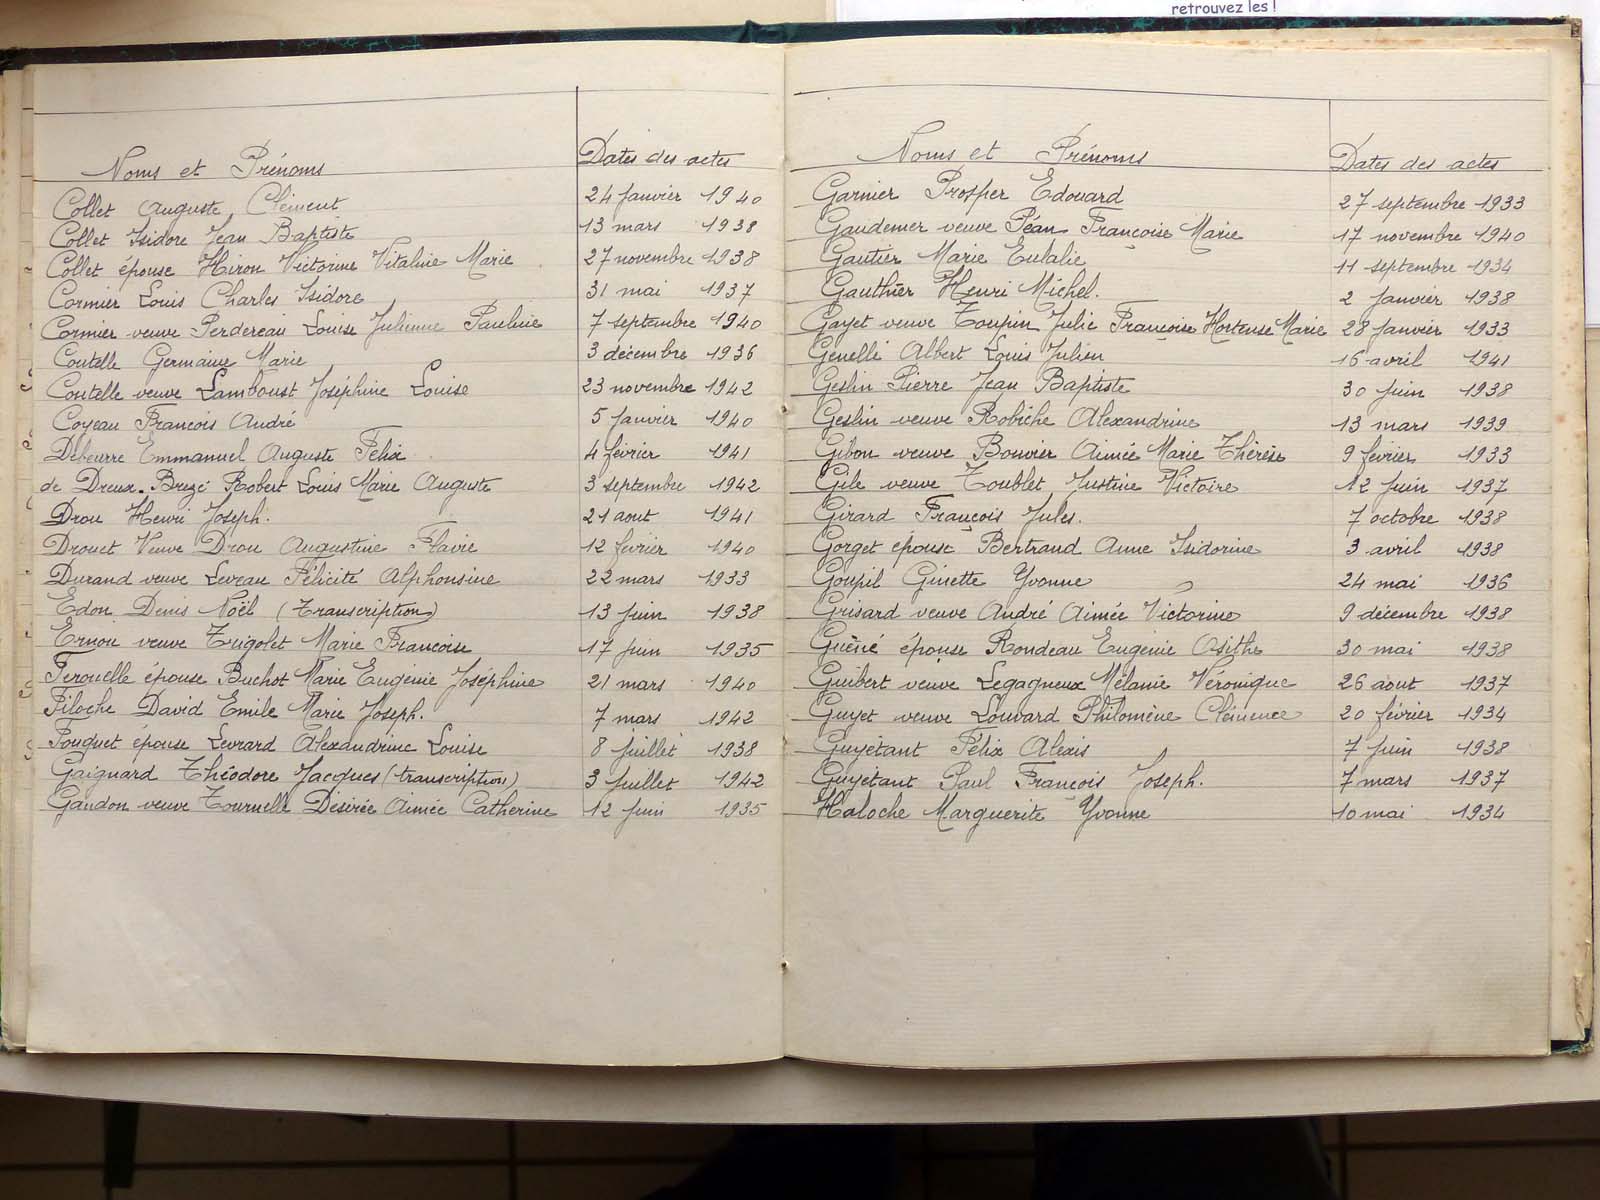 retrouvez les !
Noms et Prénoms Dates des actes
Collet Auguste Clément 24 Janvier 1940
Collet Isidore Jean Baptiste 13 mars 1938
Collet épouse Hiron Victorine Vitaline Marie 27 novembre 1938
Cormier Louis Charles Isidore 31 mai 1937
Cormier veuve Perdereau Louise Julienne Pauline 7 septembre 1940
Coutelle Germaine Marie 3 décembre 1936
Coutelle veuve Lamboust Joséphine Louise 23 novembre 1942
Coyeau François André 5 Janvier 1940
Debeurre Emmanuel Auguste Félix 4 février 1941
de Dreux-Brezé Robert Louis Marie Auguste 3 septembre 1942
Drou Henri Joseph. 21 aout 1941
Drouet Veuve Drou Augustine Flavie 12 février 1940
Durand veuve Leveau Félicité Alphonsine 22 mars 1933
Edon Denis Noël (Transcription) 13 Juin 1938
Ernou veuve Trigolet Marie Françoise 17 Juin 1935
Ferouelle épouse Buchot Marie Eugénie Joséphine 21 mars 1940
Filoche David Emile Marie Joseph. 7 mars 1942
Fouquet épouse Levrard Alexandrine Louise 8 Juillet 1938
Gaignard Théodore Jacques (transcription) 3 Juillet 1942
Gandon veuve Tournelle Désirée Aimée Catherine 12 Juin 1935
Noms et Prénoms Dates des actes
Garnier Prosper Edouard 27 septembre 1933
Gaudemer veuve Péan Françoise Marie 17 novembre 1940
Gautier Marie Eulalie 11 septembre 1934
Gauthier Henri Michel. 2 Janvier 1938
Gayet veuve Toupin Julie Françoise Hortense Marie 28 Janvier 1933
Genelle Albert Louis Julien 16 avril 1941
Geslin Pierre Jean Baptiste 30 Juin 1938
Geslin veuve Robiche Alexandrine 13 mars 1939
Gibon veuve Bouvier Aimée Marie Thérèse 9 février 1933
Gile veuve Toublet Justine Victoire 12 Juin 1937
Girard François Jules. 7 octobre 1938
Gorget épouse Bertrand Anne Isidorine 3 avril 1938
Goupil Ginette Yvonne 24 mai 1936
Grisard veuve André Aimée Victorine 9 décembre 1938
Guéné épouse Rondeau Eugénie Osithe 30 mai 1938
Guibert veuve Legagneux Mélanie Véronique 26 aout 1937
Guyet veuve Louvard Philomène Clémence 20 février 1934
Guyétant Félix Alexis 7 Juin 1938
Guyétant Paul François Joseph. 7 mars 1937
Haloche Marguerite Yvonne 10 mai 1934